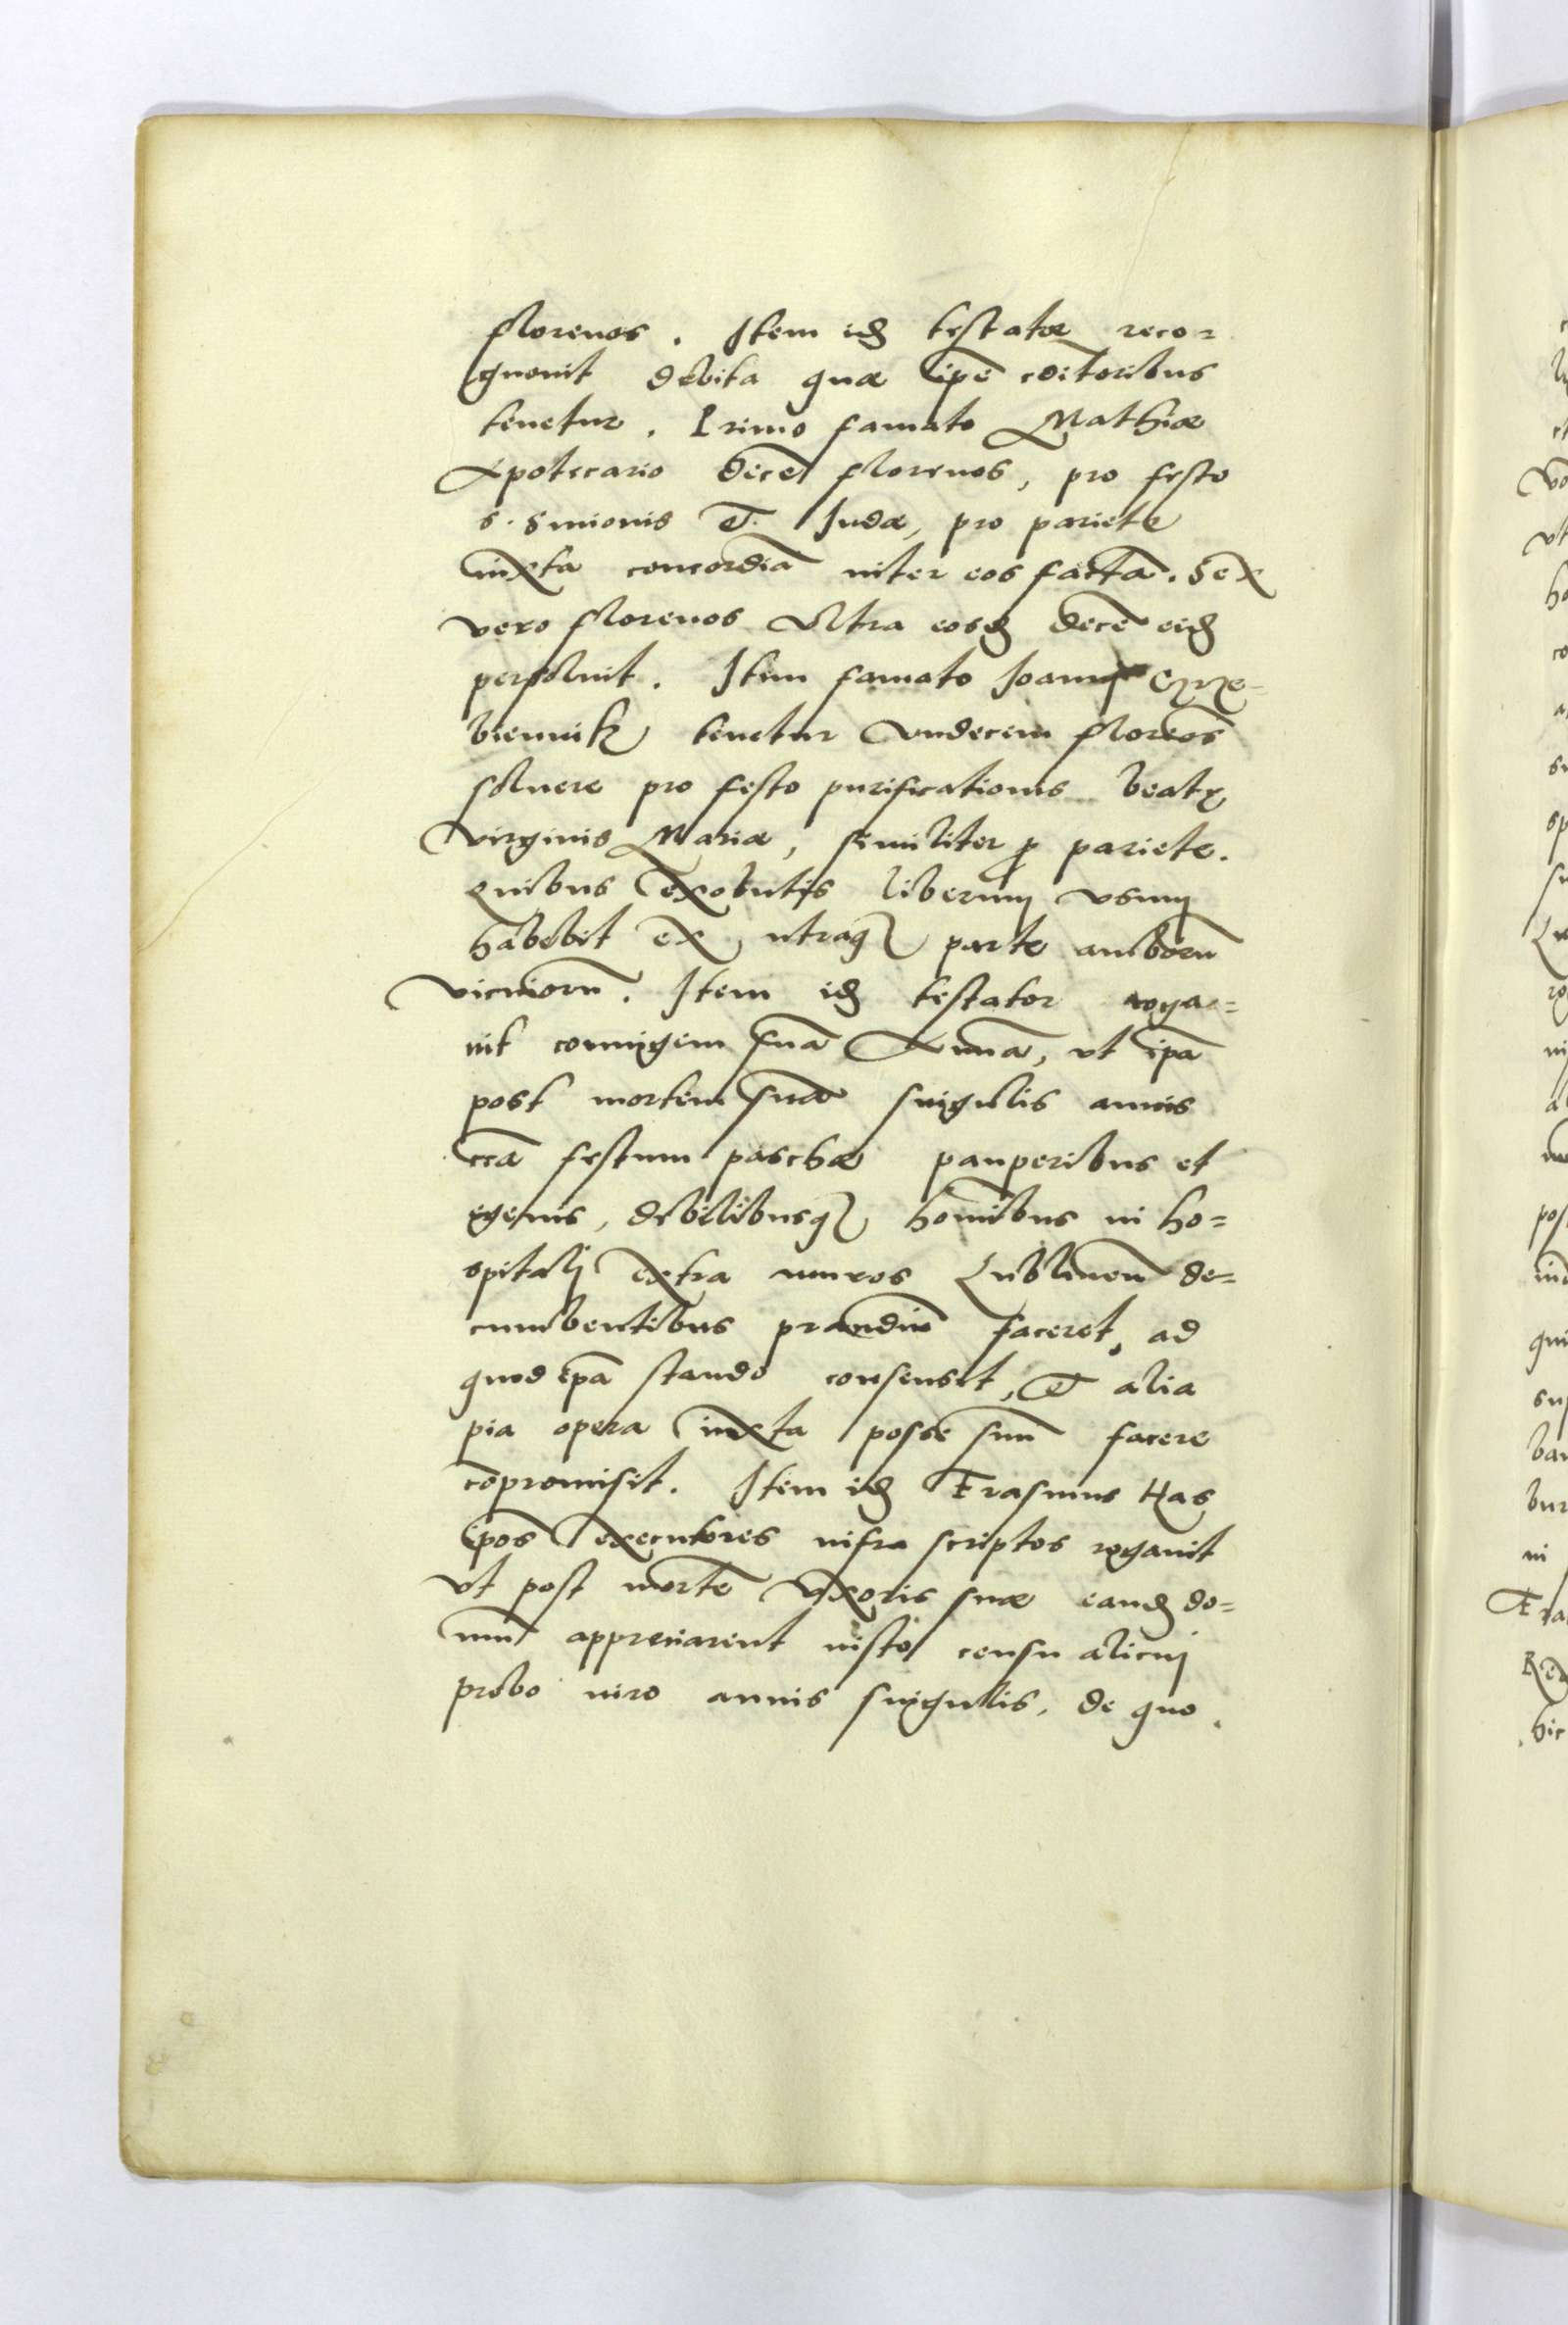 florenos. Item idẽ testator reco-
gnouit debita quæ ipẽ cditoribus
tenetur. Primo famato Mathiæ
Apotecario decẽ florenos, pro festo
s. Simonis et Iudæ, pro pariete
iuxta concordiã inter eos factã. Sex
vero florenos vltra eosdẽ decẽ eidẽ
persoluit. Item famato Joanni
biennik tenetur vndecem floreos
soluere pro festo purificationis beatæ
virginis Mariæ, similiter ꝓ pariete.
Quibus exolutis liberum vsum
habebit ex utraqꝫ parte amborũ
vicinorũ. Item idẽ testator roga-
uit coniugem suã Annã, vt ipã
post mortem suã singulis annis
ccã festum paschæ pauperibus et
egenis, debilibusqꝫ hominibus in ho-
spitalj extra muros Lublinen̄ de-
cumbentibus prandiũ faceret, ad
quod ipã stando consensit, et alia
pia opera iuxta posse suũ facere
cõpromisit. Item idẽ Erasmus Has
ipõs executores infra scriptos rogauit
vt post mortẽ vxoris suæ eandẽ do-
mũ appreciarent iusto censu alicuj
probo uiro annis singulis, de quo